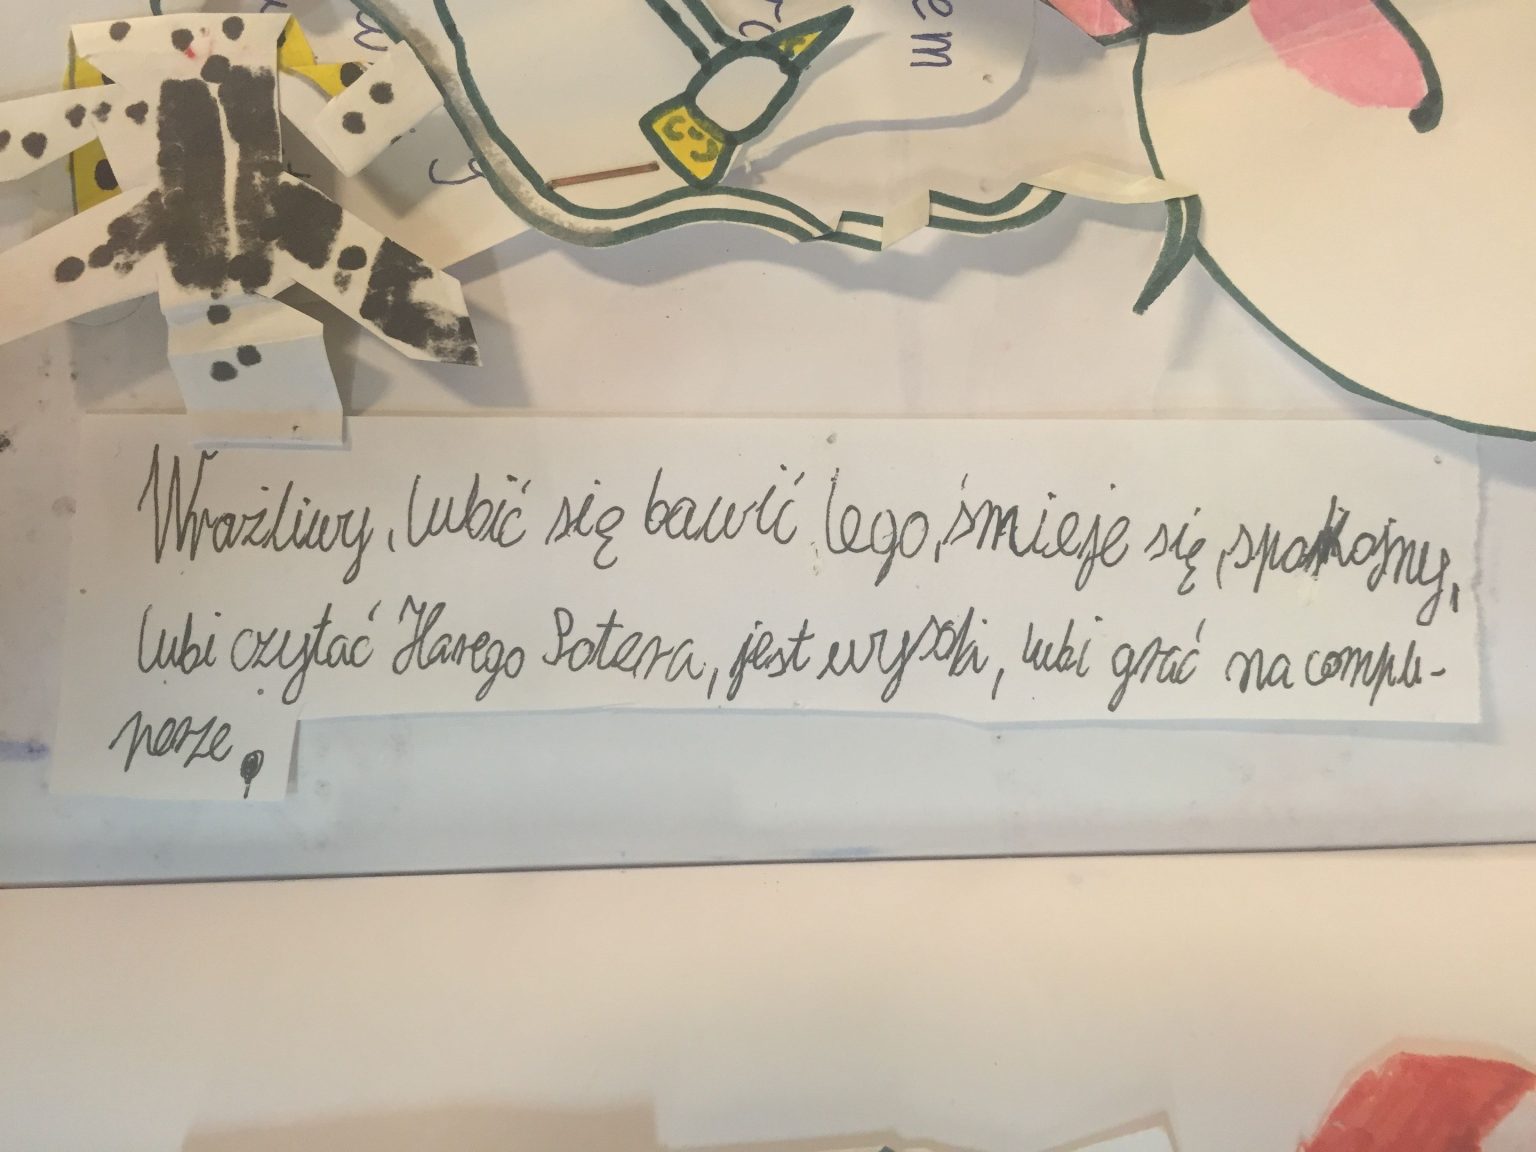 em
Wrażliwy, lubić się bawić lego, śmieje się, spokojny,
lubi czytać Harego Potera, jest wysoki, lubi grać na compu-
terze.